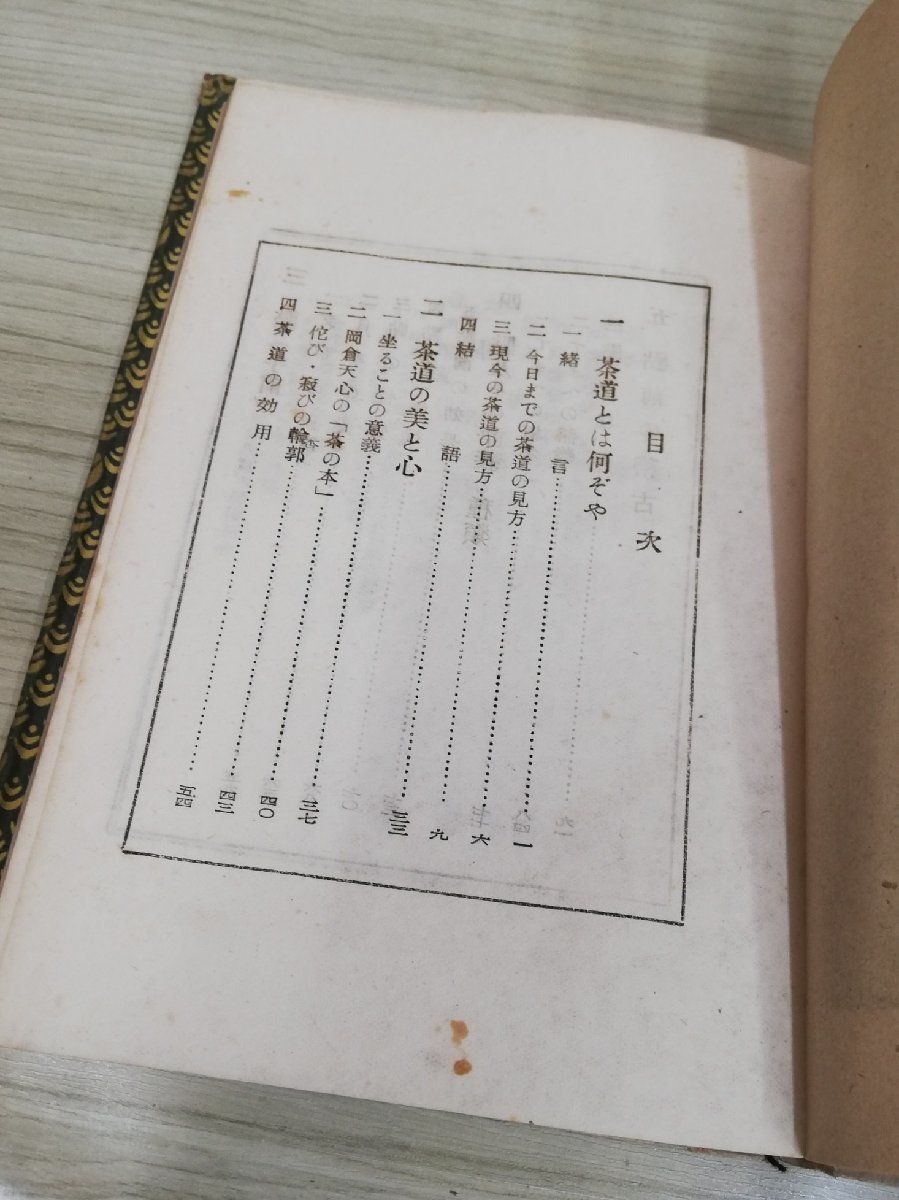 目次
一 茶道とは何ぞや
一 緒言……一
二 今日までの茶道の見方……六
三 現今の茶道の見方……九
四 結語……三三
二 茶道の美と心
一 坐ることの意義……三七
二 岡倉天心の「茶の本」……四〇
三 佗び・寂びの輪郭……四三
四 茶道の効用……五四